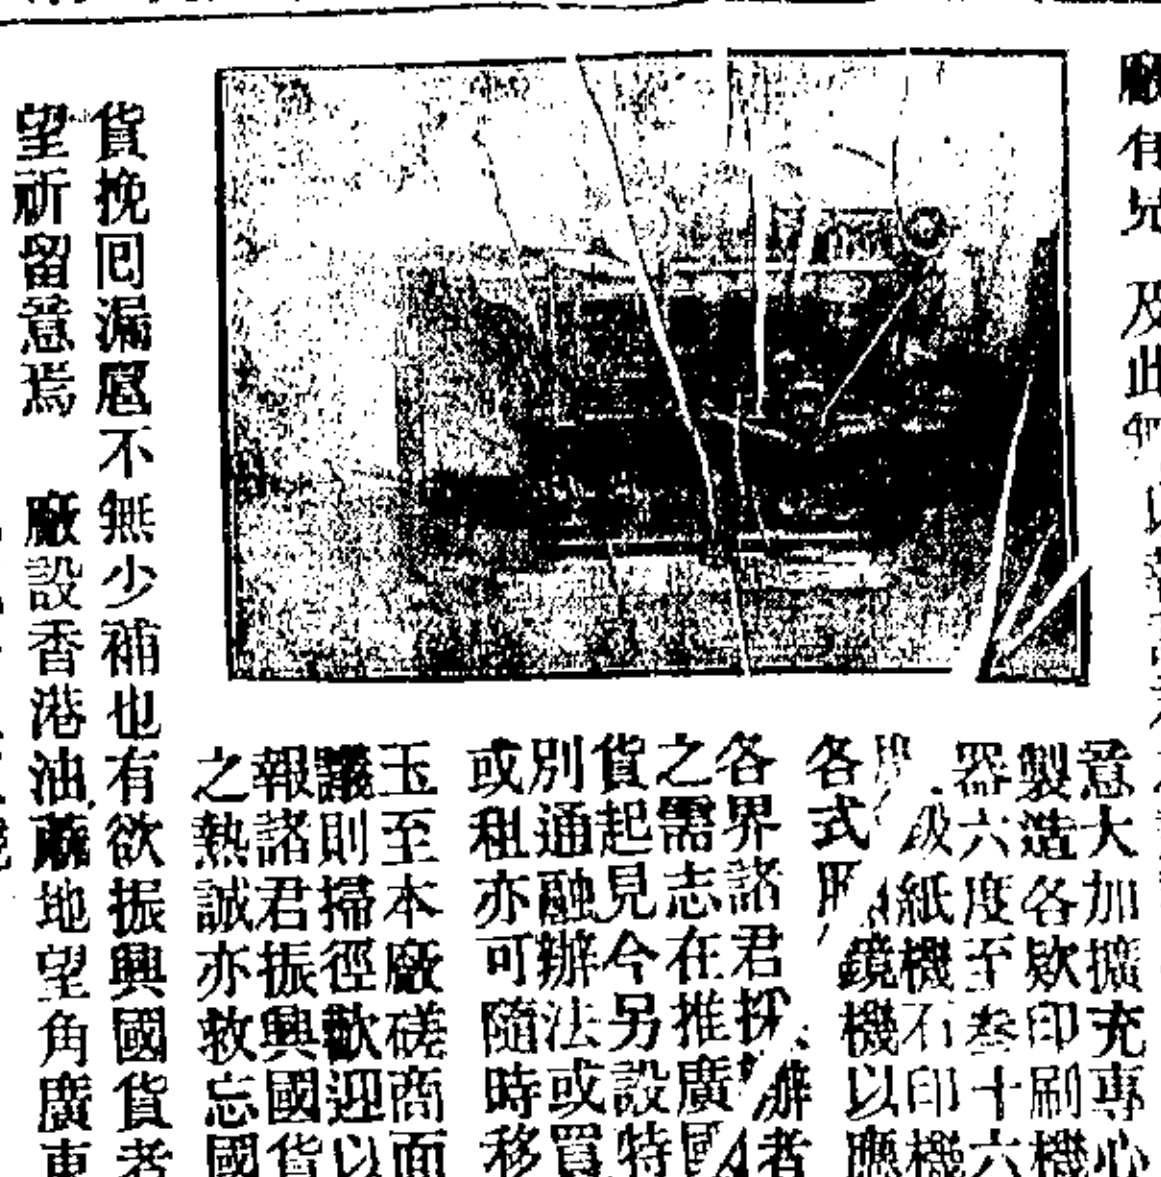 廠有
及此
意大加擴充專心
製造各欵印刷機
器六度至叁十六
級紙機石印機
各式 鏡機以應
各界諸君採辦者
之需志在推廣國
貨起見今另設特
別通融辦法或買
或租亦可隨時移
玉至本廠磋商面
議則掃徑歡迎以
報諸君振興國貨
之熱誠亦救忘國
貨挽囘漏巵不無少補也有欲振興國貨者
望祈留意焉 廠設香港油蔴地望角廣東